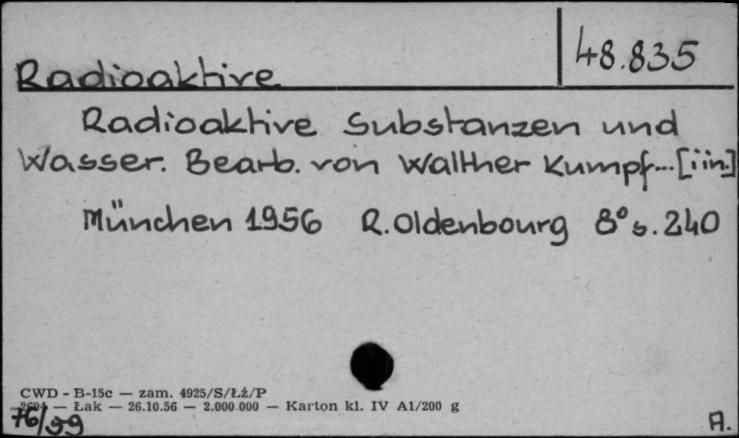 48.835
Radioaktive
Radioaktive Substanzen und
Wasser. Bearb. von Walther Kumpf... [i in.]
München 1956 R. Oldenbourg 8° s. 240
CWD - B-15c — zam. 4925/S/Łź/P
2694 — Łak — 26.10.56 — 2.000.000 — Karton kl. IV A1/200 g
76/99
A.